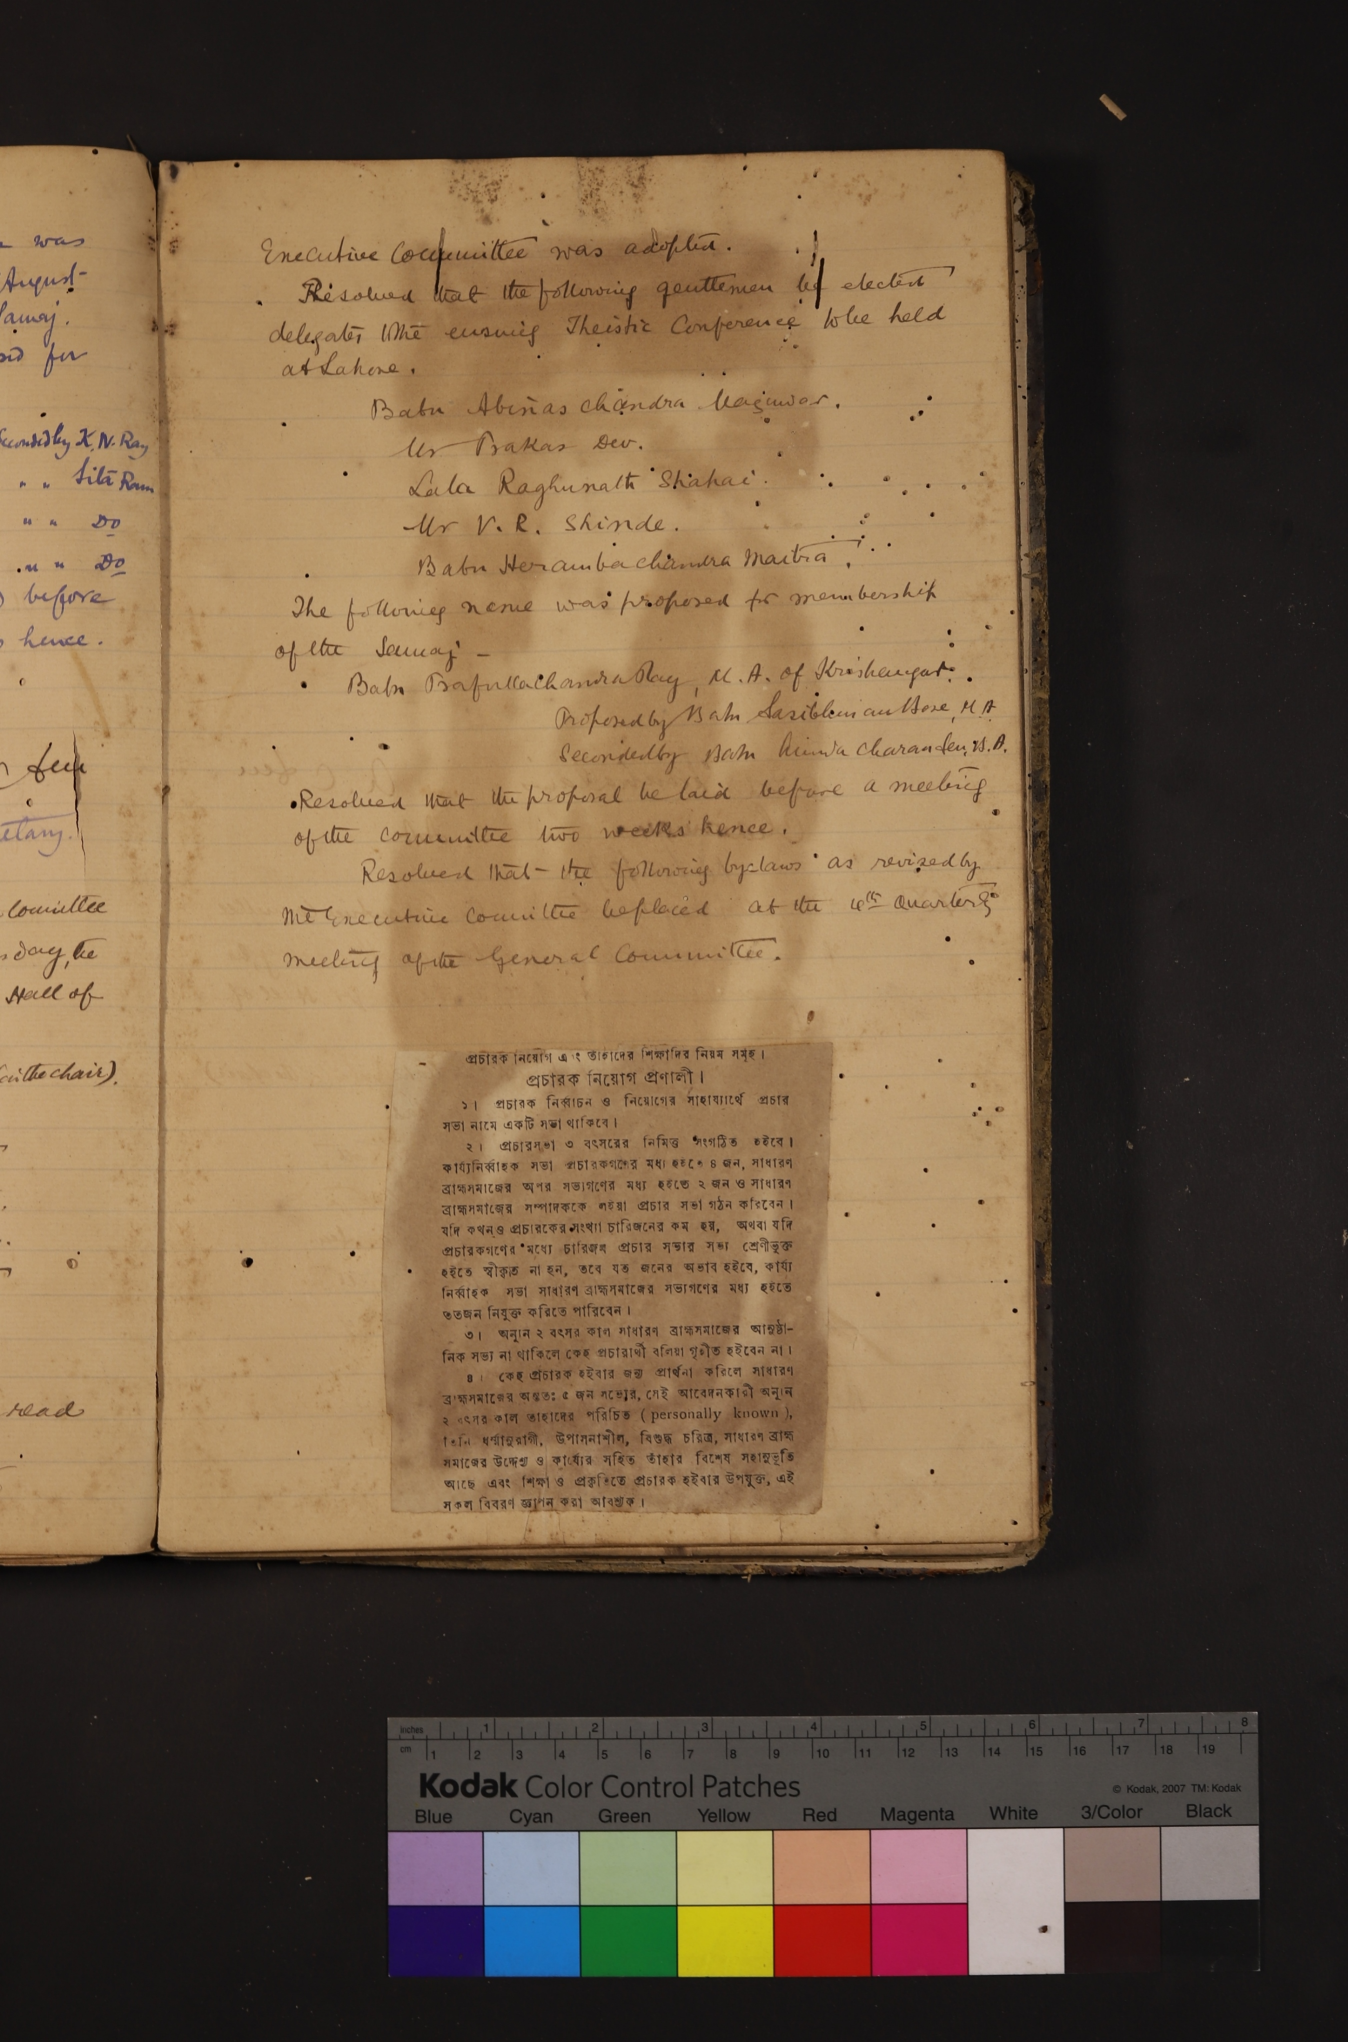 was
August
Samaj.
for
Seconded by K. N. Ray
" " Sita Ram
" " Do
" " Do
before
hence.
Sen
Committee
day, the
Hall of
(in the chair).
read
Executive Committee was adopted.
Resolved that the following gentlemen be elected
delegates to the ensuing Theistic Conference to be held
at Lahore.
Babu Abinas Chandra Mazumdar.
Mr Prakas Dev.
Lala Raghunath Shahai.
Mr V. R. Shinde.
Babu Heramba Chandra Maitra.
The following name was proposed for membership
of the Samaj —
Babu Prafulla Chandra Ray, M. A. of Krishnagar.
Proposed by Babu Sasibhusan Bose, M. A.
Seconded by Babu Charan Sen, B. A.
Resolved that the proposal be laid before a meeting
of the committee two weeks hence.
Resolved that the following bye-laws as revised by
the Executive Committee be placed at the 4th Quarterly
meeting of the General Committee.
প্রচারক নিয়োগ এবং তাঁহাদের শিক্ষাদির নিয়ম সমূহ।
প্রচারক নিয়োগ প্রণালী।
১। প্রচারক নির্ব্বাচন ও নিয়োগের সাহায্যার্থে প্রচার
সভা নামে একটি সভা থাকিবে।
২। প্রচারসভা ৩ বৎসরের নিমিত্ত সংগঠিত হইবে।
কার্য্যনির্ব্বাহক সভা প্রচারকগণের মধ্য হইতে ৪ জন, সাধারণ
ব্রাহ্মসমাজের অপর সভ্যগণের মধ্য হইতে ২ জন ও সাধারণ
ব্রাহ্মসমাজের সম্পাদককে লইয়া প্রচার সভা গঠন করিবেন।
যদি কখনও প্রচারকের সংখ্যা চারিজনের কম হয়, অথবা যদি
প্রচারকগণের মধ্যে চারিজন প্রচার সভার সভ্য শ্রেণীভুক্ত
হইতে স্বীকৃত না হন, তবে যত জনের অভাব হইবে, কার্য্য
নির্ব্বাহক সভা সাধারণ ব্রাহ্মসমাজের সভ্যগণের মধ্য হইতে
ততজন নিযুক্ত করিতে পারিবেন।
৩। অন্যূন ২ বৎসর কাল সাধারণ ব্রাহ্মসমাজের আনুষ্ঠা-
নিক সভ্য না থাকিলে কেহ প্রচারার্থী বলিয়া গৃহীত হইবেন না।
৪। কেহ প্রচারক হইবার জন্য প্রার্থনা করিলে সাধারণ
ব্রাহ্মসমাজের অন্ততঃ ৫ জন সভ্যের, সেই আবেদনকারী অন্যূন
২ বৎসর কাল তাহাদের পরিচিত ( personally known ),
তিনি ধর্ম্মানুরাগী, উপাসনাশীল, বিশুদ্ধ চরিত্র, সাধারণ ব্রাহ্ম
সমাজের উদ্দেশ্য ও কার্য্যের সহিত তাঁহার বিশেষ সহানুভূতি
আছে এবং শিক্ষা ও প্রকৃতিতে প্রচারক হইবার উপযুক্ত, এই
সকল বিবরণ জ্ঞাপন করা আবশ্যক।
inches 1 2 3 4 5 6 7 8
cm 1 2 3 4 5 6 7 8 9 10 11 12 13 14 15 16 17 18 19
Kodak Color Control Patches
© Kodak, 2007 TM: Kodak
Blue Cyan Green Yellow Red Magenta White 3/Color Black